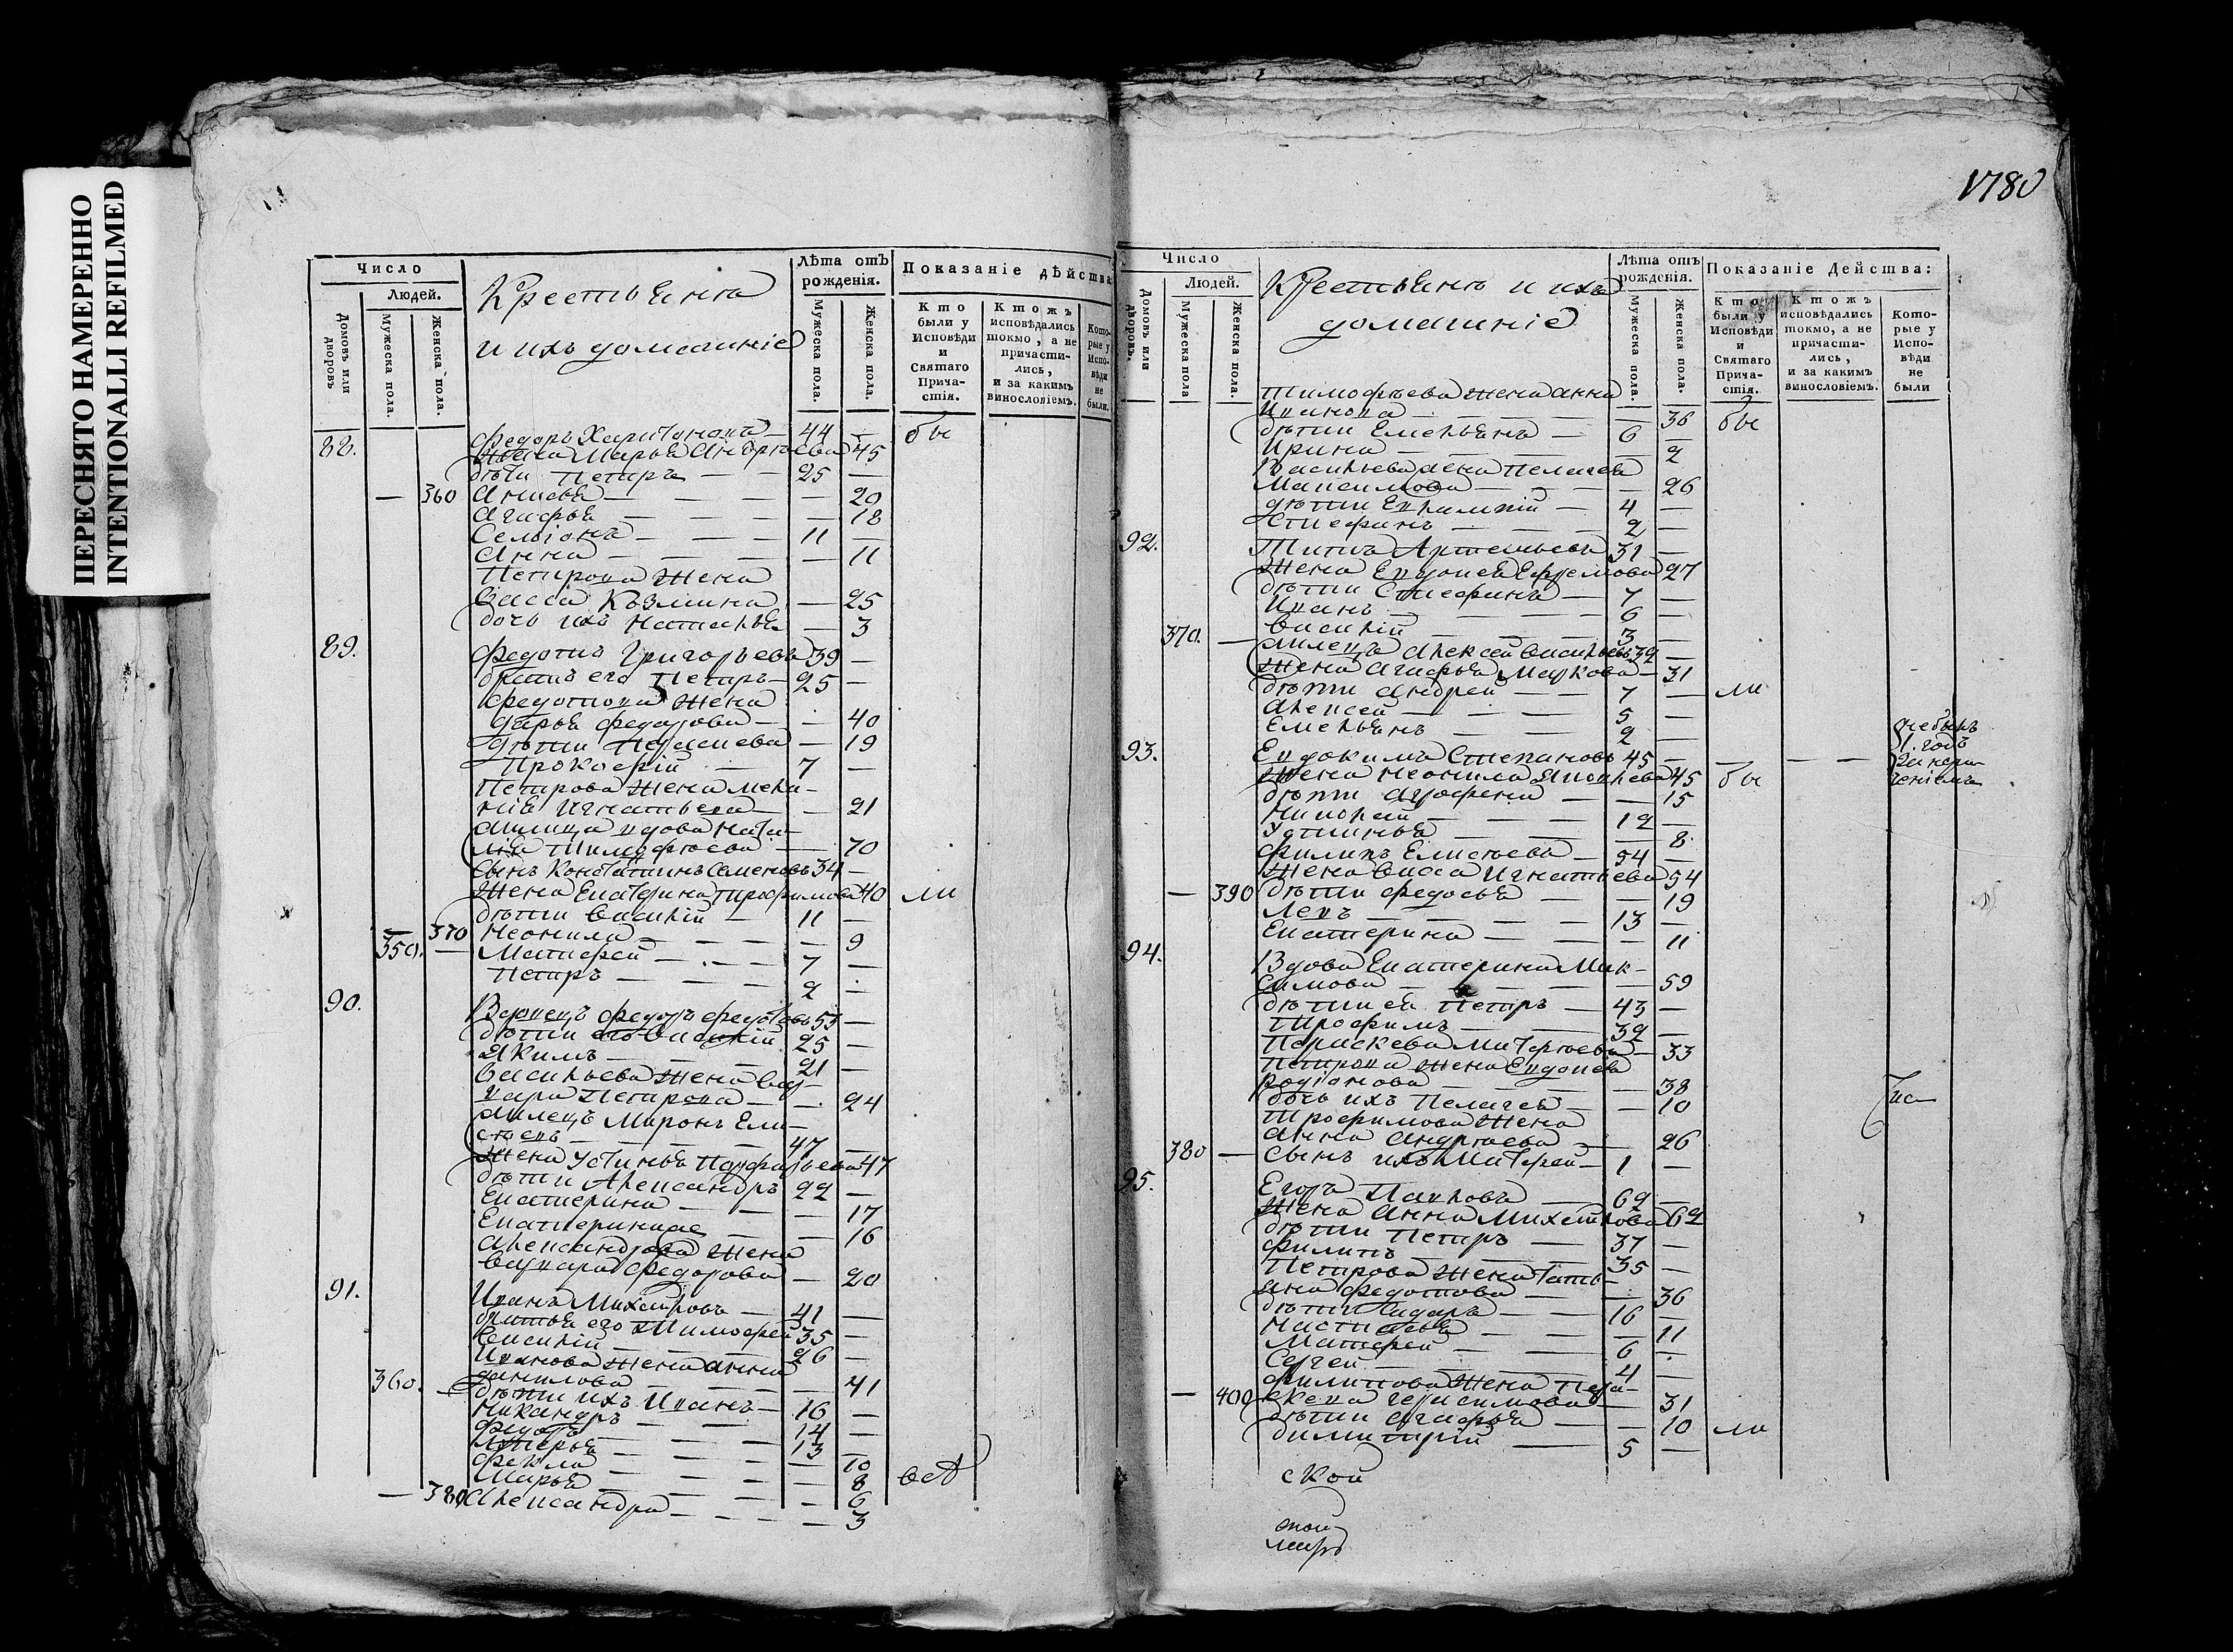 ПЕРЕСНЯТО НАМЕРЕННО
INTENTIONALLI REFILMED
Число
Людей.
Домовъ или дворовъ
Мужеска пола.
Женска пола.
Крестьяна
и ихъ домашніе
Лѣта отъ рожденія.
Мужеска пола.
Женска пола.
Показаніе дѣйства
Кто были у Исповѣди и Святаго Прича-стія.
Ктожъ исповѣдались токмо, а не причасти-лись, и за какимъ винословіемъ.
Кото-рые у Испо-вѣди не были.
88. Федоръ Харитоновъ — 44 — бы
Жена Марья Андрѣева 45
дѣти Петръ — 25 —
— 360 Анисья — — 20
Агафья — — 18
Семіонъ — 11 —
Анна — — 11
Петрова Жена
Васса Козмина — 25
дочь ихъ Наталья — 3
89. Федотъ Григорьевъ 39 —
братъ его Петръ — 25 —
Федотова Жена
дарья Федорова — — 40
дѣти Парасева — 19
Прокофій — 7 —
Петрова Жена Мела-
нія Игнатьева — — 21
вдова Ната-
лія Тимофѣева — 70
Сынъ Константинъ Семеновъ 34 —
Жена Екатерина Трофимова 40 ли
дѣти Василій — 11 —
370 Неонила — — 9
350. — Матфей — 7 —
Петръ — 2 —
90. Федоръ Федотовъ 53 —
дѣти его Василій 25 —
Якимъ — 21 —
Васильева Жена Вар-
вара Петрова — — 24
Миронъ Ели-
сѣевъ — 47 —
Жена Устинья Парфирьева 47
дѣти Александръ 22 —
Екатерина — — 17
Екатерина — — 16
Александрова Жена
Варвара Федорова — 20
91. Иванъ Михайловъ — 41 —
братья его Тимофей 35 —
Василій — 26 —
Иванова Жена Анна
данилова — — 41
360. — дѣти ихъ Иванъ — 16 —
Никандръ — 14 —
Федоръ — 13 —
Лукерья — — 10
Фекла — — 8
Марья — — 6
— 380 Александра — — 3
1780
Число
Людей.
Домовъ или дворовъ.
Мужеска пола
Женска пола.
Крестьянъ и ихъ
домашніе
Лѣта отъ рожденія.
Мужеска пола.
Женска пола.
Показаніе Действа:
Кто были у Исповѣди и Святаго Прича-стія.
Ктожъ исповѣдались токмо, а не причасти-лись, и за какимъ винословіемъ.
Кото-рые у Испо-вѣди не были
Тимофѣева Жена Анна
Иванова — — 36 бы
дѣти Емельянъ — 6 —
Ирина — — 2
Васильева Жена Пелагея
Максимова — — 26
дѣти Евлампій — 4 —
Стефанъ — 2 —
92. Титъ Артемьевъ 31 —
Жена Евдокея Ефремова 27
дѣти Стефанъ — 7 —
Иванъ — 6 —
370. — Василій — 3 —
Алексей Васильевъ 32 —
Жена Агафья Маркова — 31
дѣти Андрей — 7 — ли
Алексей — 5 —
Емельянъ — 2 —
93. Евдокимъ Степановъ 45 — небылъ 1. годъ
Жена Неонила Яковлева 45 бы
дѣти Аграфена — — 15
Николай — 12 —
Устинья — — 8
Филипъ Елисѣевъ — 54 —
Жена Васса Игнатьева 54
— 390 дѣти Федосья — — 19
Левъ — 13 —
Екатерина — — 11
94. Вдова Екатерина Мак-
симова — — 59
дѣти ея Петръ — 43 —
Трофимъ — 32 —
Параскева Матфѣева — 33
Петрова Жена Евдокея
Родіонова — — 38
дочь ихъ Пелагея — — 10
Трофимова Жена
Анна Андрѣева — 26
380 — Сынъ ихъ Матфей — 1 —
95. Егоръ Павловъ — 62 —
Жена Анна Михайлова 62
дѣти Петръ — 37 —
Филипъ — 35 —
Петрова Жена Татья-
яна Федотова — — 36
дѣти Сидоръ — 16 —
Настасья — — 11
Матфей — 6 —
Сергей — 4 —
Филипова Жена Пара-
— 400 скева Герасимова — 31
дѣти Агафья — — 10 ли
димитрій — 5 —
ской